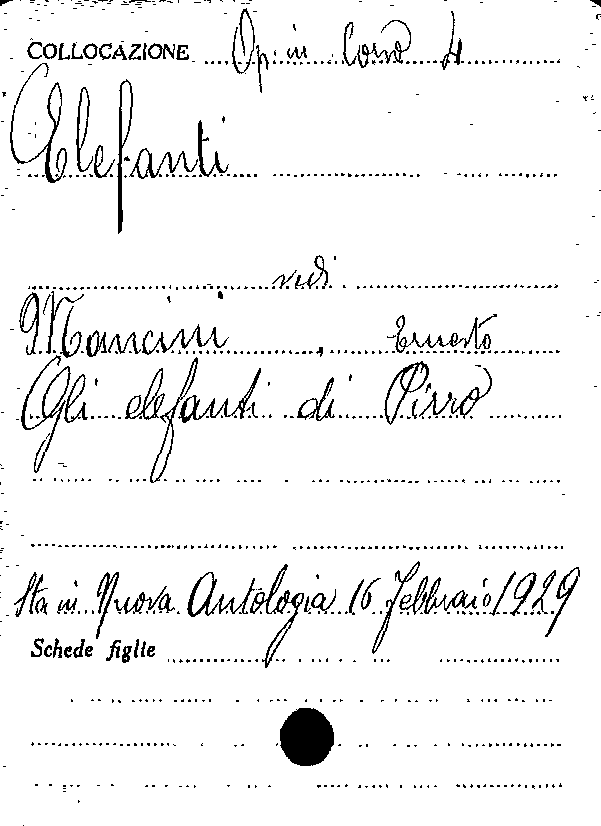 COLLOCAZIONE Op. in Corso 4
Elefanti
vedi
Mancini, Ernesto
Gli elefanti di Pirro
Sta in Nuova Antologia 16 Febbraio 1929
Schede figlie